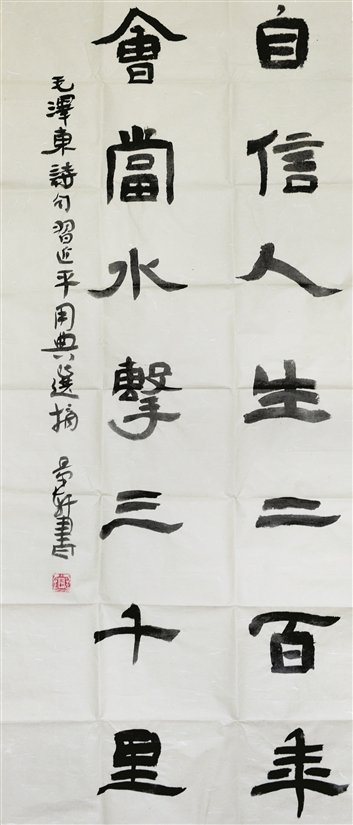 自信人生二百年
會當水擊三千里
毛澤東詩句習近平用典選摘
書